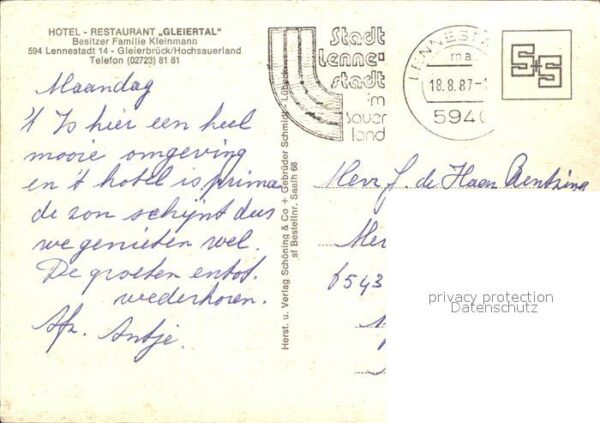 HOTEL - RESTAURANT „GLEIERTAL"
Besitzer Familie Kleinmann
594 Lennestadt 14 - Gleierbrück/Hochsauerland
Telefon (02723) 81 81
Maandag
't Is hier een heel
mooie omgeving
en 't hotel is prima
de zon schijnt dus
we genieten wel.
De groeten en tot
wederhoren.
Afz. Antje.
Herst. u. Verlag Schöning & Co + Gebrüder Schmidt, Lübeck
sf Bestellnr. Saalh 68
Stadt
Lenne-
stadt
im
sauer
land
LENNESTA
ma
18.8.87-1
5940
S+S
Mevr J. de Haan
Me
6543
privacy protection
Datenschutz